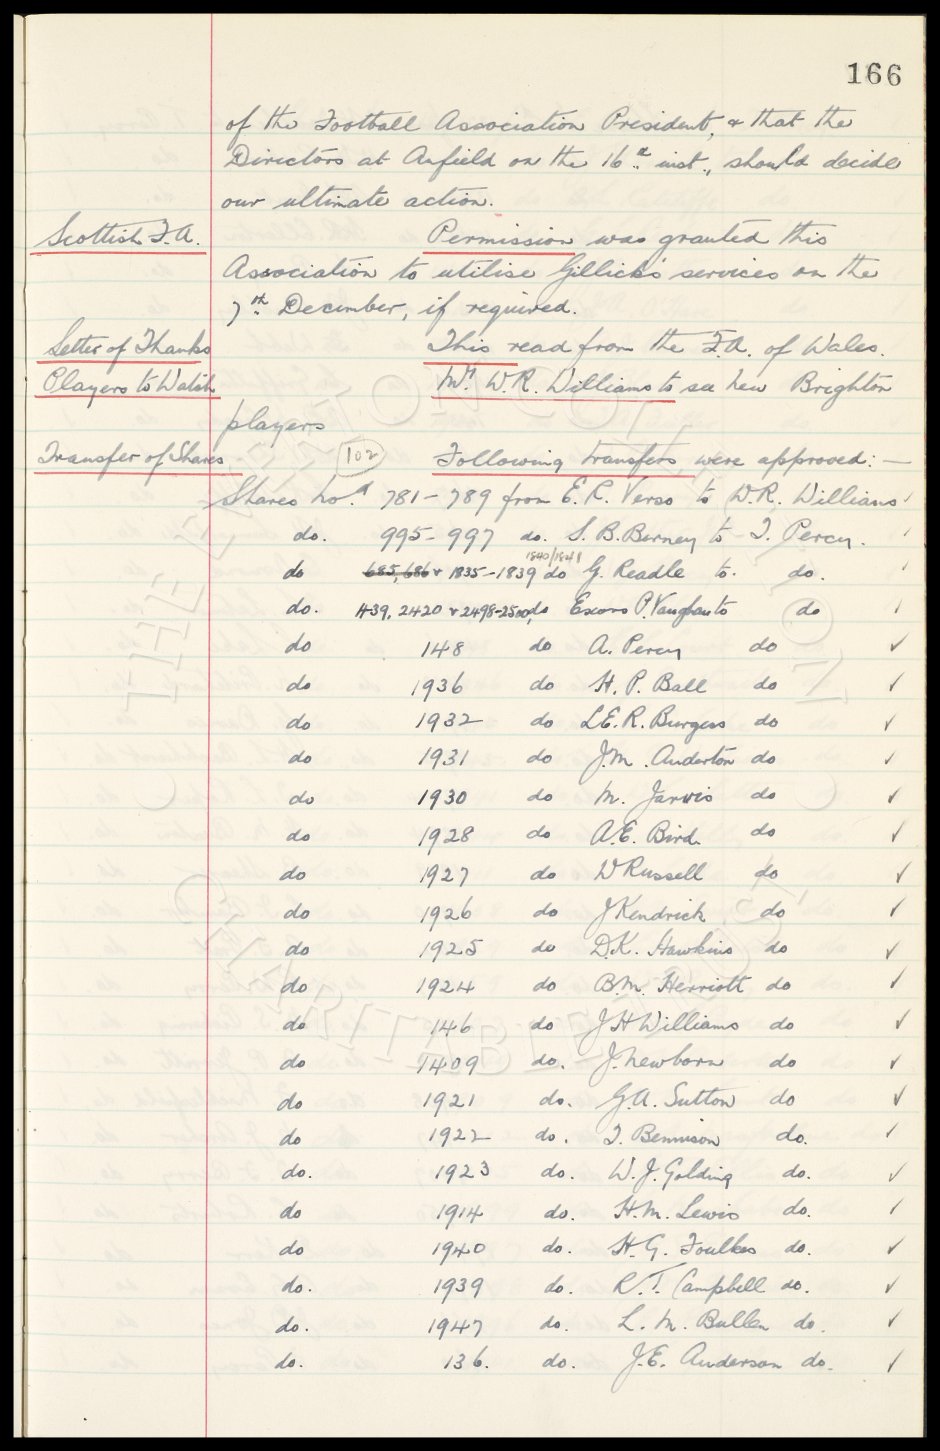 166
of the Football Association President, & that the
Directors at Anfield on the 16th inst., should decide
our ultimate action.
Scottish F.A. Permission was granted this
Association to utilise Gillick's services on the
7th December, if required.
Letter of Thanks This read from the F.A. of Wales.
Players to Watch Mr. W.R. Williams to see New Brighton
players
Transfer of Shares 102 Following transfers were approved:—
Shares Nos. 781-789 from E. R. Verso to W.R. Williams
do. 995-997 do. S. B. Berney to T. Percy.
1840/1841
do 685, 686 & 1835-1839 do G. Readle to. do.
do. 439, 2420 & 2498-2500, do Exors P. Vaughan to do
do 148 do A. Percy do
do 1936 do H. P. Ball do
do 1932 do L.E.R. Burgess do
do 1931 do J.M. Anderton do
do 1930 do M. Jarvis do
do 1928 do A.E. Bird do
do 1927 do W Russell do
do 1926 do J Kendrick do
do 1925 do D.K. Hawkins do
do 1924 do B.M. Herriott do
do 146 do J H Williams do
do 1409 do. J. Newborn do
do 1921 do. G.A. Sutton do
do 1922 do. T. Bennison do.
do. 1923 do. W. J. Golding do.
do 1914 do. H.M. Lewis do.
do 1940 do. H. G. Foulkes do.
do. 1939 do. R. T. Campbell do.
do. 1947 do. L. M. Bullen do.
do. 136. do. J.E. Anderson do.